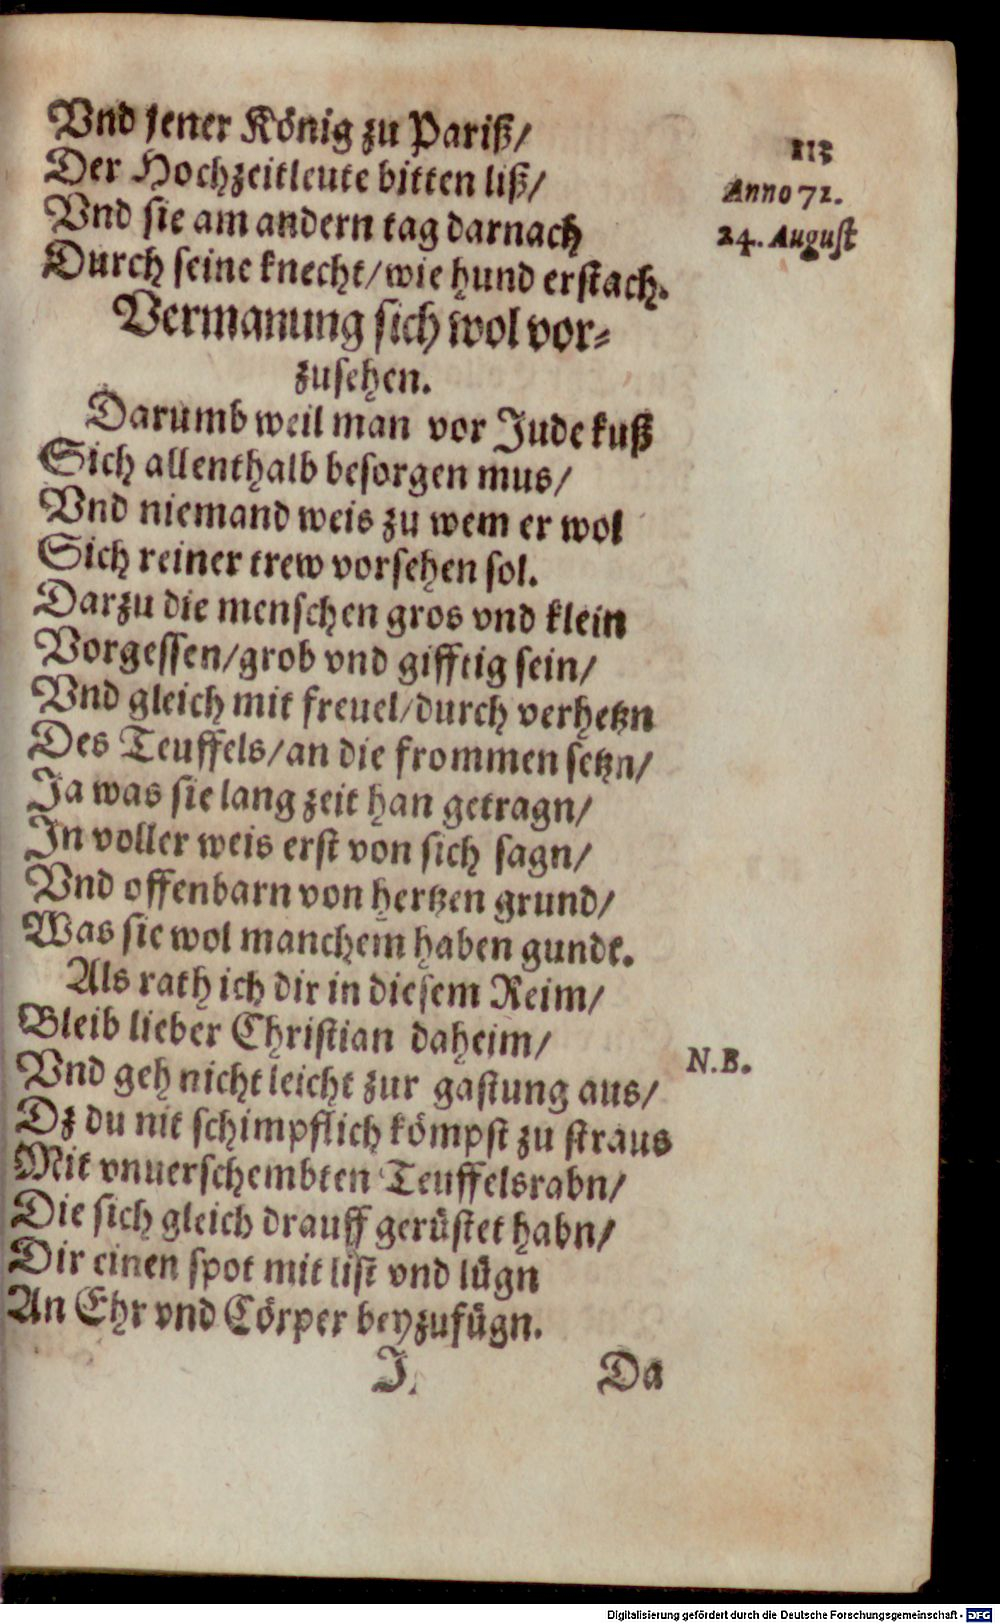 113
Vnd jener König zu Pariß/
Der Hochzeitleute bitten liß/
Anno 72.
Vnd sie am andern tag darnach
24. August
Durch seine knecht/wie hund erstach.
Vermanung sich wol vor⸗
zusehen.
Darumb weil man vor Jude kuß
Sich allenthalb besorgen mus/
Vnd niemand weis zu wem er wol
Sich reiner trew vorsehen sol.
Darzu die menschen gros vnd klein
Vorgessen/grob vnd gifftig sein/
Vnd gleich mit freuel/durch verhetzn
Des Teuffels/an die frommen setzn/
Ja was sie lang zeit han getragn/
In voller weis erst von sich sagn/
Vnd offenbarn von hertzen grund/
Was sie wol manchem haben gundt.
Als rath ich dir in diesem Reim/
Bleib lieber Christian daheim/
N.B.
Vnd geh nicht leicht zur gastung aus/
Dz du nit schimpflich kömpst zu straus
Mit vnuerschembten Teuffelsrabn/
Die sich gleich drauff gerüstet habn/
Dir einen spot mit list vnd lügn
An Ehr vnd Cörper beyzufügn.
I.
Da
Digitalisierung gefördert durch die Deutsche Forschungsgemeinschaft - DFG